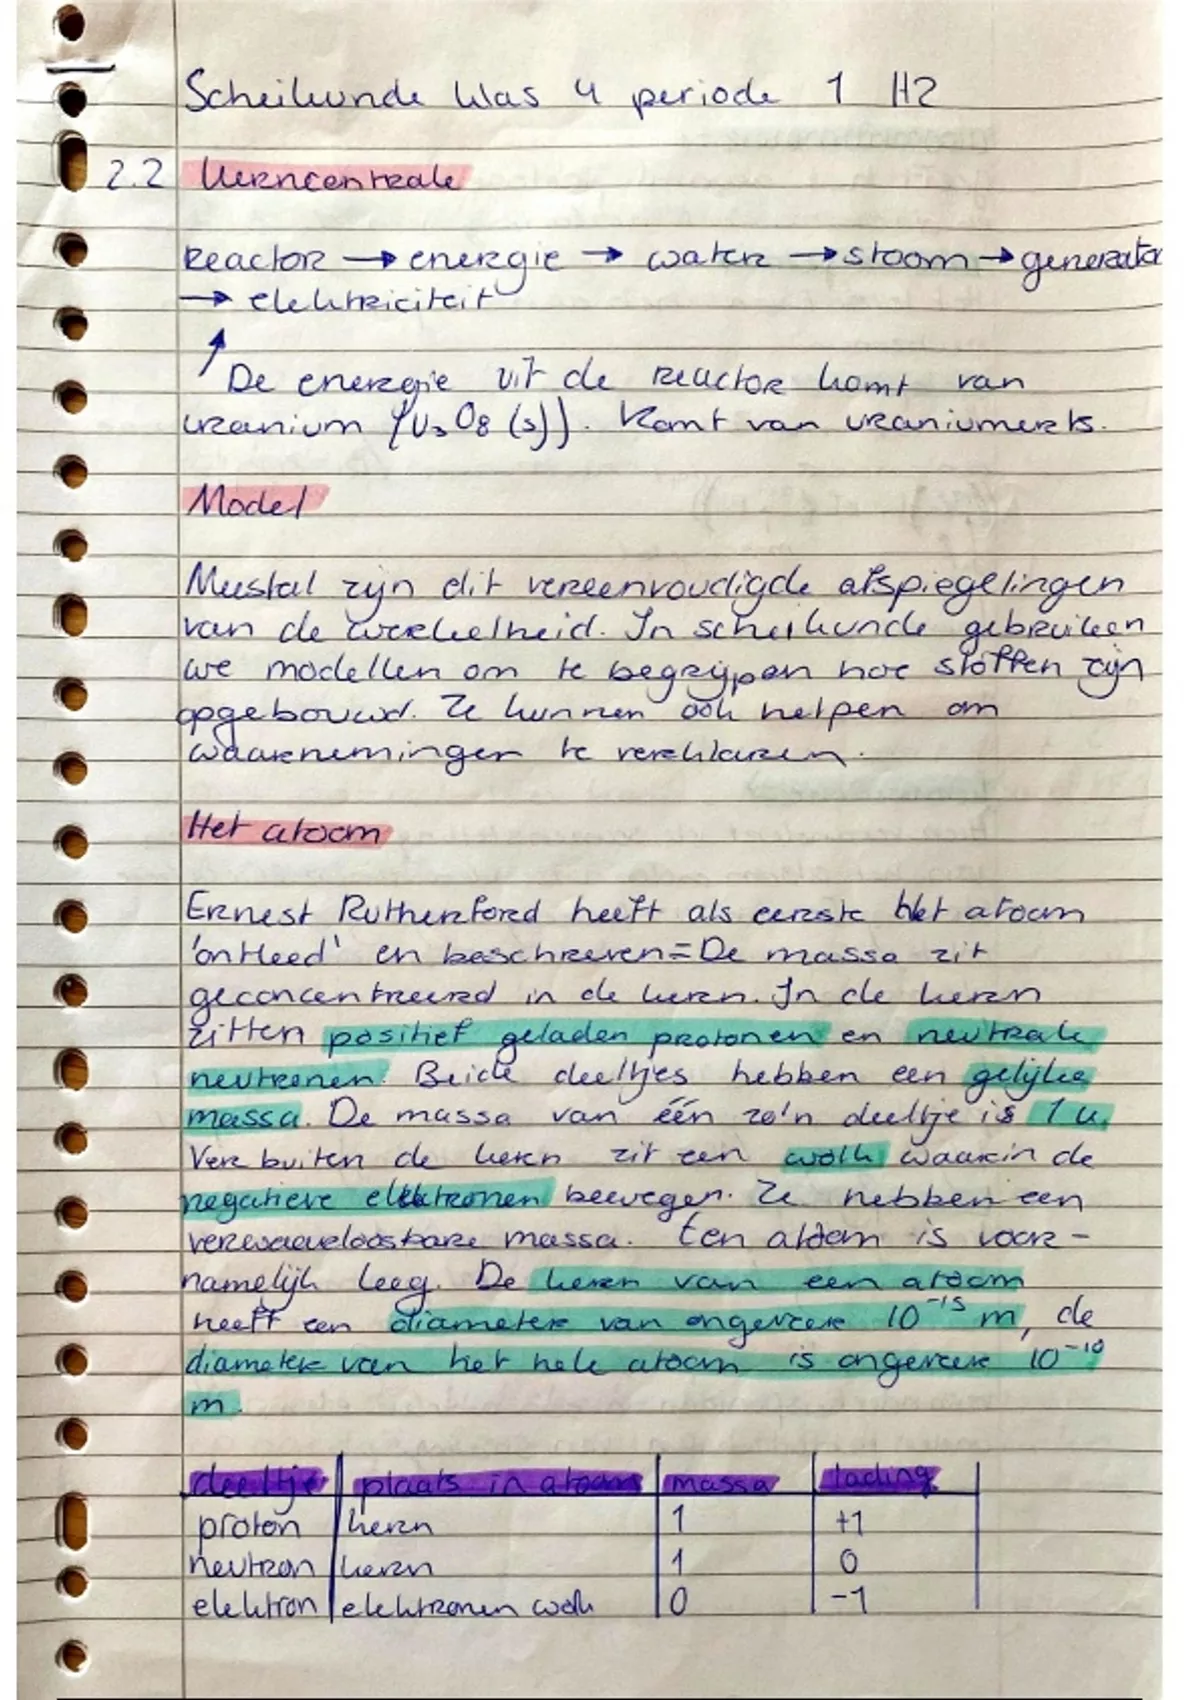 Scheikunde klas 4 periode 1 H2
2.2 Kerncentrale
Reactor → energie → water → stoom → generator
→ elektriciteit
De energie uit de reactor komt van
uranium (U₃O₈ (s)). Komt van uraniumerts.
Model
Meestal zijn dit vereenvoudigde afspiegelingen
van de werkelheid. In scheikunde gebruiken
we modellen om te begrijpen hoe stoffen zijn
opgebouwd. Ze kunnen ook helpen om
waarnemingen te verklaren.
Het atoom
Ernest Rutherford heeft als eerste het atoom
'ontleed' en beschreven = De massa zit
geconcentreerd in de kern. In de kern
zitten positief geladen protonen en neutrale
neutronen. Beide deeltjes hebben een gelijke
massa. De massa van één zo'n deeltje is 1 u.
Ver buiten de kern zit een wolk waarin de
negatieve elektronen bewegen. Ze hebben een
verwaarloosbare massa. Een atoom is voor-
namelijk leeg. De kern van een atoom
heeft een diameter van ongeveer 10⁻¹⁵ m, de
diameter van het hele atoom is ongeveer 10⁻¹⁰
m.
deeltje plaats in atoom massa lading
proton kern 1 +1
neutron kern 1 0
elektron elektronen wolk 0 -1